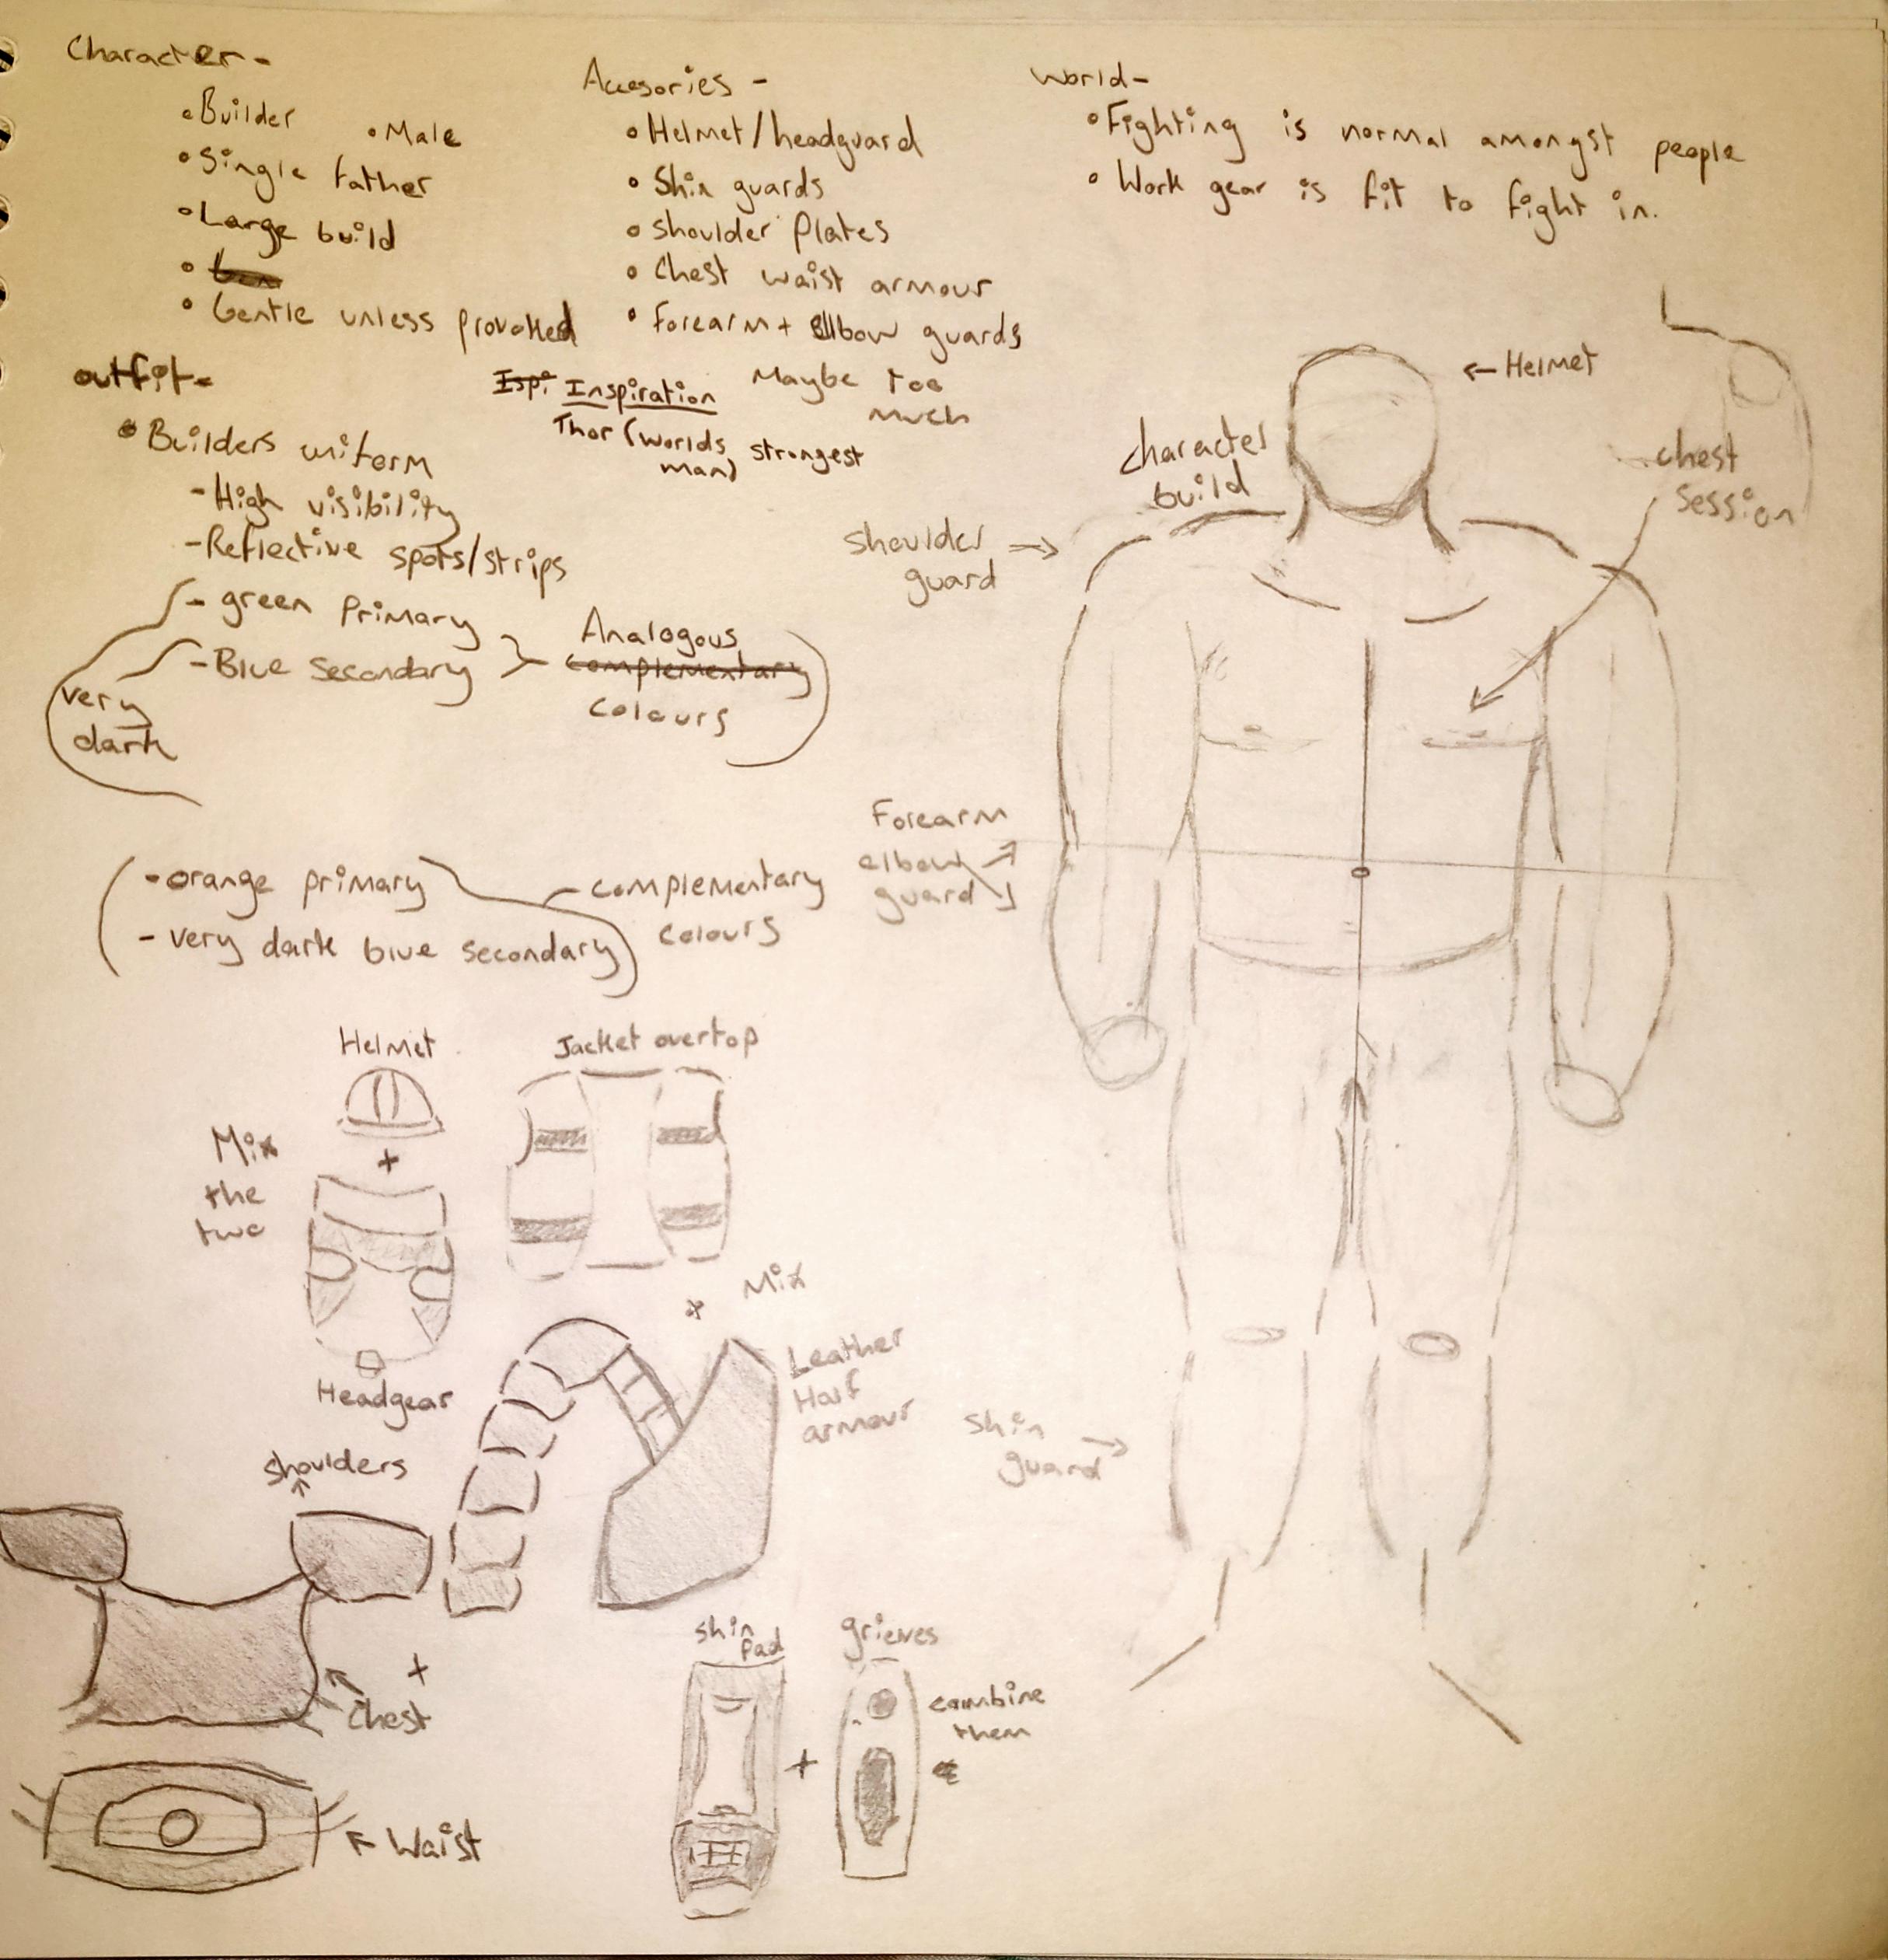 Character -
• Builder
• Male
• Single father
• Large build
•
• Gentle unless provoked
outfit -
• Builders uniform
- High visibility
- Reflective spots/strips
- green Primary
- Blue Secondary
very
dark
Analogous
complementary
colours
(- orange primary
- very dark blue secondary)
complementary
colours
Accesories -
• Helmet/headguard
• Shin guards
• Shoulder Plates
• Chest waist armour
• Forearm + Ellbow guards
Maybe too
much
Ispi Inspiration
Thor (worlds strongest
man)
World -
• Fighting is normal amongst people
• Work gear is fit to fight in.
← Helmet
character
build
chest
session
shoulder
guard
Forearm
elbow
guard
shin
guard
Helmet
Mix
the
two
+
Headgear
Jacket overtop
+
Mix
Leather
Half
armour
shoulders
+
Chest
Waist
shin
Pad
+
grieves
combine
them